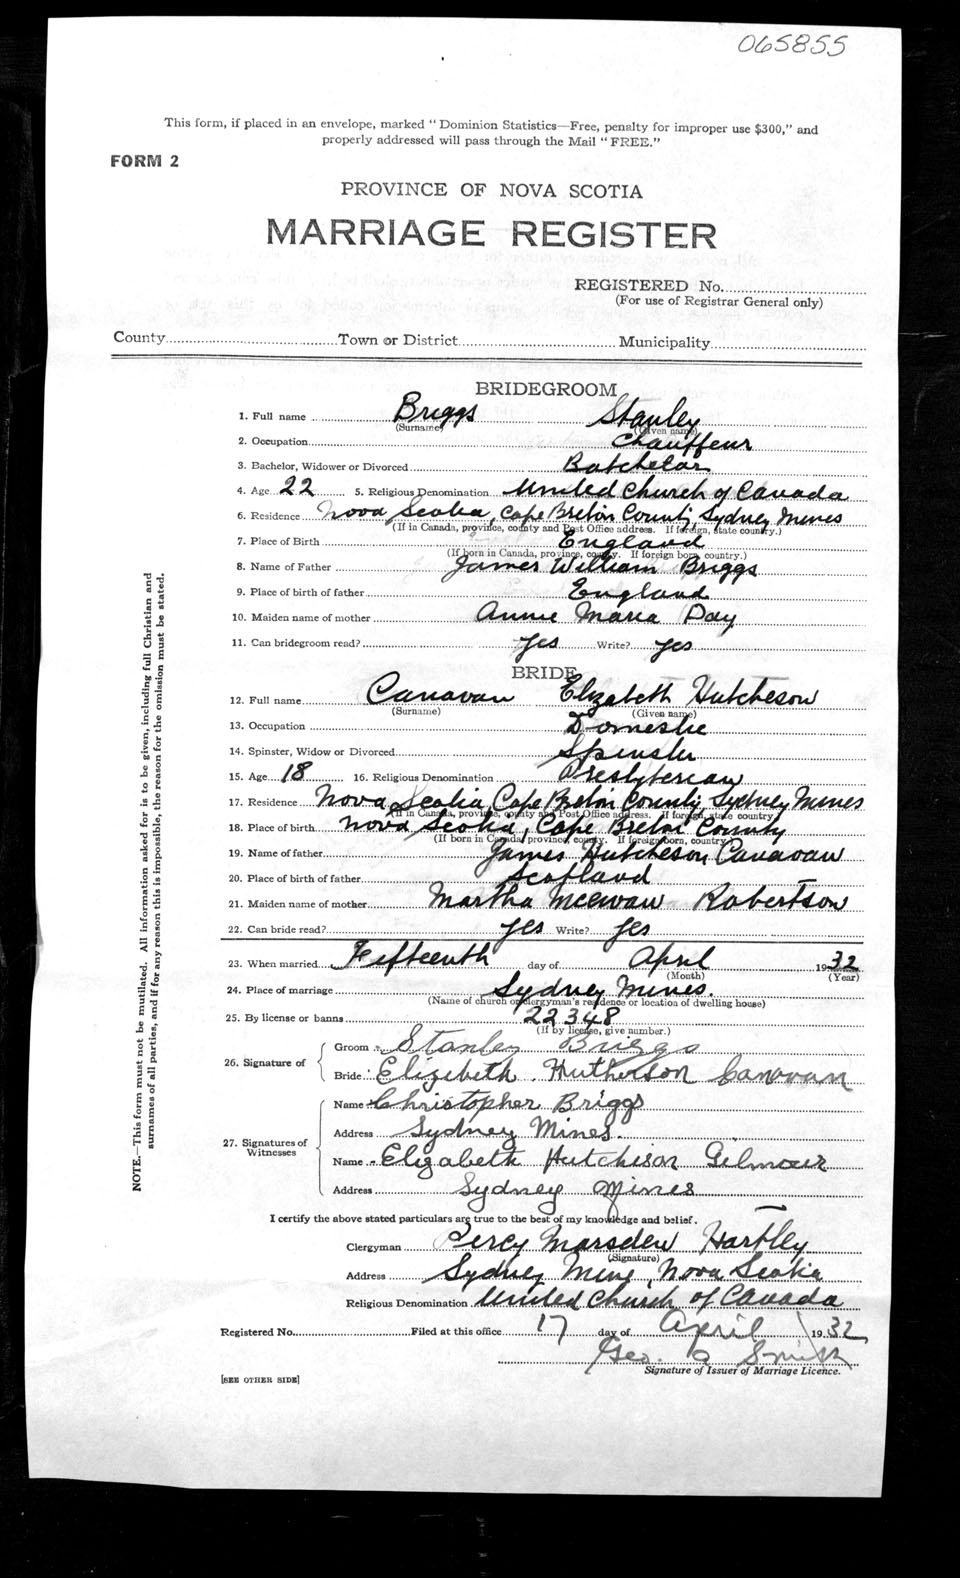 065855
This form, if placed in an envelope, marked "Dominion Statistics—Free, penalty for improper use $300," and
properly addressed will pass through the Mail "FREE."
FORM 2
PROVINCE OF NOVA SCOTIA
MARRIAGE REGISTER
REGISTERED No.
(For use of Registrar General only)
County Town or District Municipality
BRIDEGROOM
1. Full name Briggs Stanley
(Surname) (Given name)
2. Occupation Chauffeur
3. Bachelor, Widower or Divorced Batchelor
4. Age 22 5. Religious Denomination United Church of Canada
6. Residence Nova Scotia, Cape Breton County, Sydney Mines
(If in Canada, province, county and Post Office address. If foreign, state country.)
7. Place of Birth England
(If born in Canada, province, county. If foreign born, country.)
8. Name of Father James William Briggs
9. Place of birth of father England
10. Maiden name of mother Annie Maria Day
11. Can bridegroom read? Yes Write? Yes
BRIDE
12. Full name Canavan Elizabeth Hutcheson
(Surname) (Given name)
13. Occupation Domestic
14. Spinster, Widow or Divorced Spinster
15. Age 18 16. Religious Denomination Presbyterian
17. Residence Nova Scotia, Cape Breton County, Sydney Mines
(If in Canada, province, county and Post Office address. If foreign, state country.)
18. Place of birth Nova Scotia, Cape Breton County
(If born in Canada, province, county. If foreign born, country.)
19. Name of father James Hutcheson Canavan
20. Place of birth of father Scotland
21. Maiden name of mother Martha McEwan Robertson
22. Can bride read? Yes Write? Yes
23. When married Fifteenth day of April 1932
(Month) (Year)
24. Place of marriage Sydney Mines.
(Name of church or clergyman's residence or location of dwelling house)
25. By license or banns 22348
(If by license, give number.)
26. Signature of Groom Stanley Briggs
Bride Elizibeth Hutherson Canovan
27. Signatures of Witnesses
Name Christopher Briggs
Address Sydney Mines.
Name Elizabeth Hutchison Gilmour
Address Sydney Mines
I certify the above stated particulars are true to the best of my knowledge and belief.
Clergyman Percy Marsden Hartley
(Signature)
Address Sydney Mine, Nova Scotia
Religious Denomination United Church of Canada
Registered No. Filed at this office 17 day of April 1932
Geo. A Smith
Signature of Issuer of Marriage Licence.
[SEE OTHER SIDE]
NOTE.—This form must not be mutilated. All information asked for is to be given, including full Christian and
surnames of all parties, and if for any reason this is impossible, the reason for the omission must be stated.